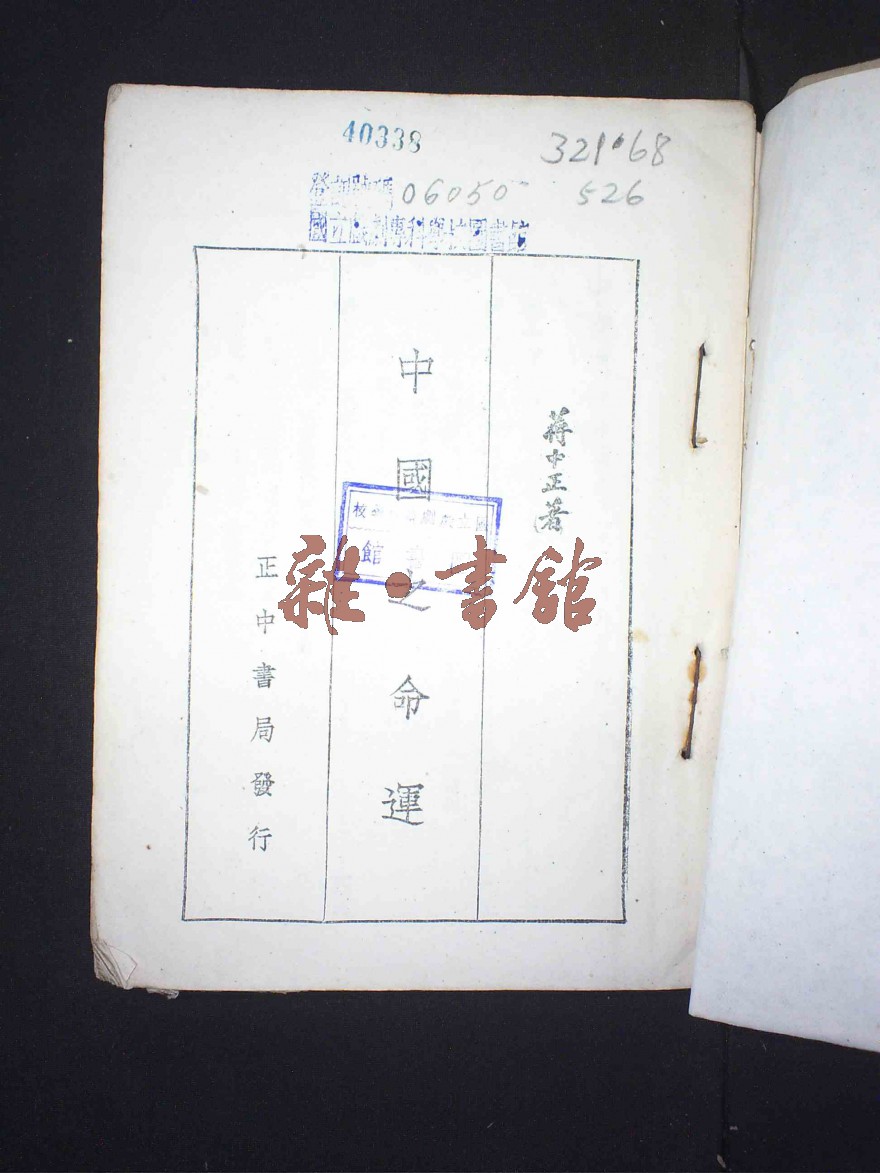 40338
321·68
登記號碼 06050 526
國立戲劇專科學校圖書館
蔣中正著
中國之命運
正中書局發行
雜·書館